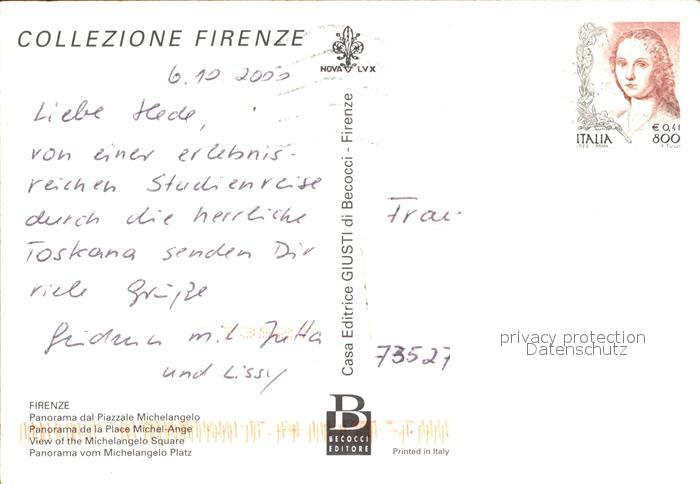 COLLEZIONE FIRENZE
NOVA LVX
6.10 2000
Liebe Hede,
von einer erlebnis-
reichen Studienreise
durch die herrliche
Toskana senden Dir
viele Grüße
Gudrun mit Jutta
und Lissy
FIRENZE
Panorama dal Piazzale Michelangelo
Panorama de la Place Michel-Ange
View of the Michelangelo Square
Panorama vom Michelangelo Platz
Casa Editrice GIUSTI di Becocci - Firenze
B
BECOCCI
EDITORE
Printed in Italy
€ 0,41
ITALIA 800
Frau
73527
privacy protection
Datenschutz